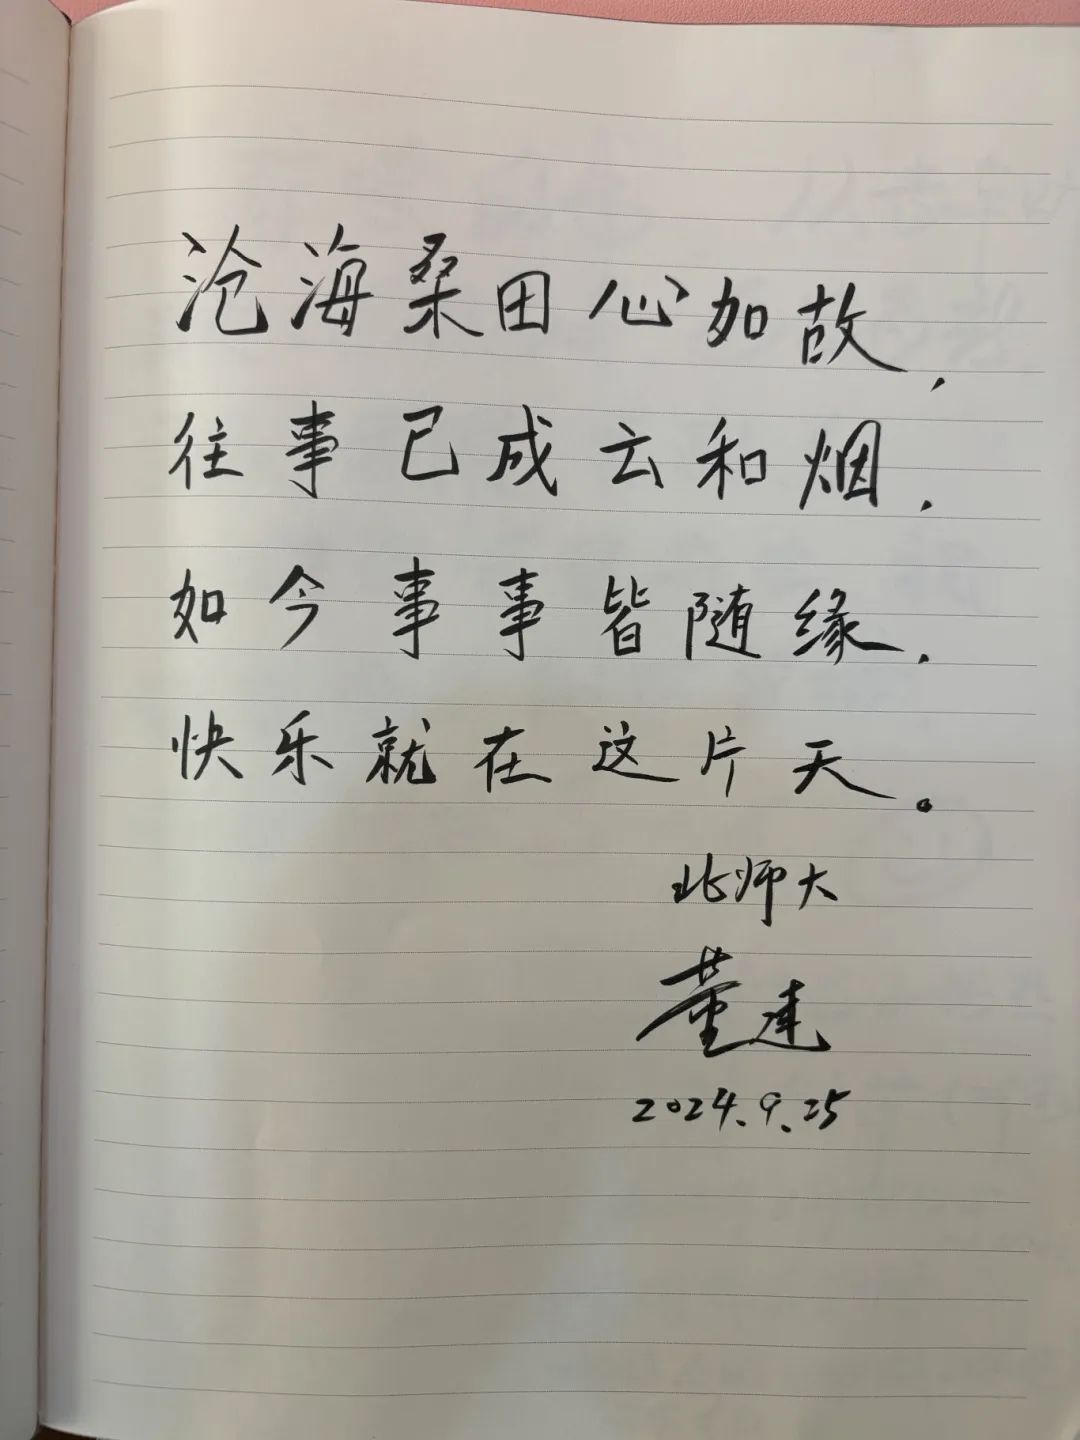 沧海桑田心如故，
往事已成云和烟，
如今事事皆随缘，
快乐就在这片天。
北师大
董建
2024.9.25